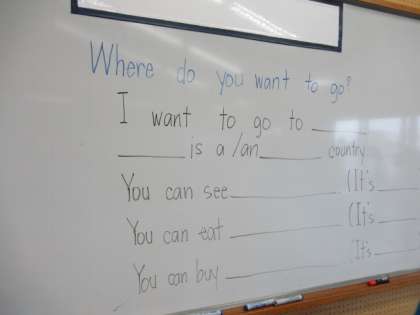 Where do you want to go?
I want to go to ______
______ is a/an ______ country
You can see ______ (It's ______
You can eat ______ (It's ______
You can buy ______ (It's ______